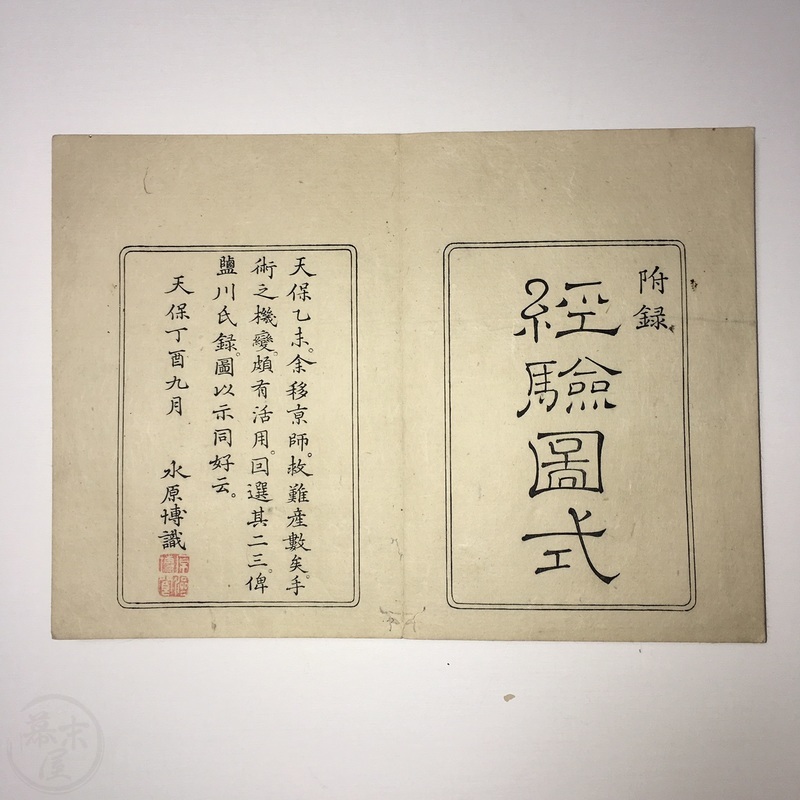 附録
經驗圖式
天保乙未。余移亰師。救難產數矣。手
術之機變。頗有活用。囙選其二三。俾
鹽川氏録。圖以示同好云。
天保丁酉九月
水原博識
幕末屋